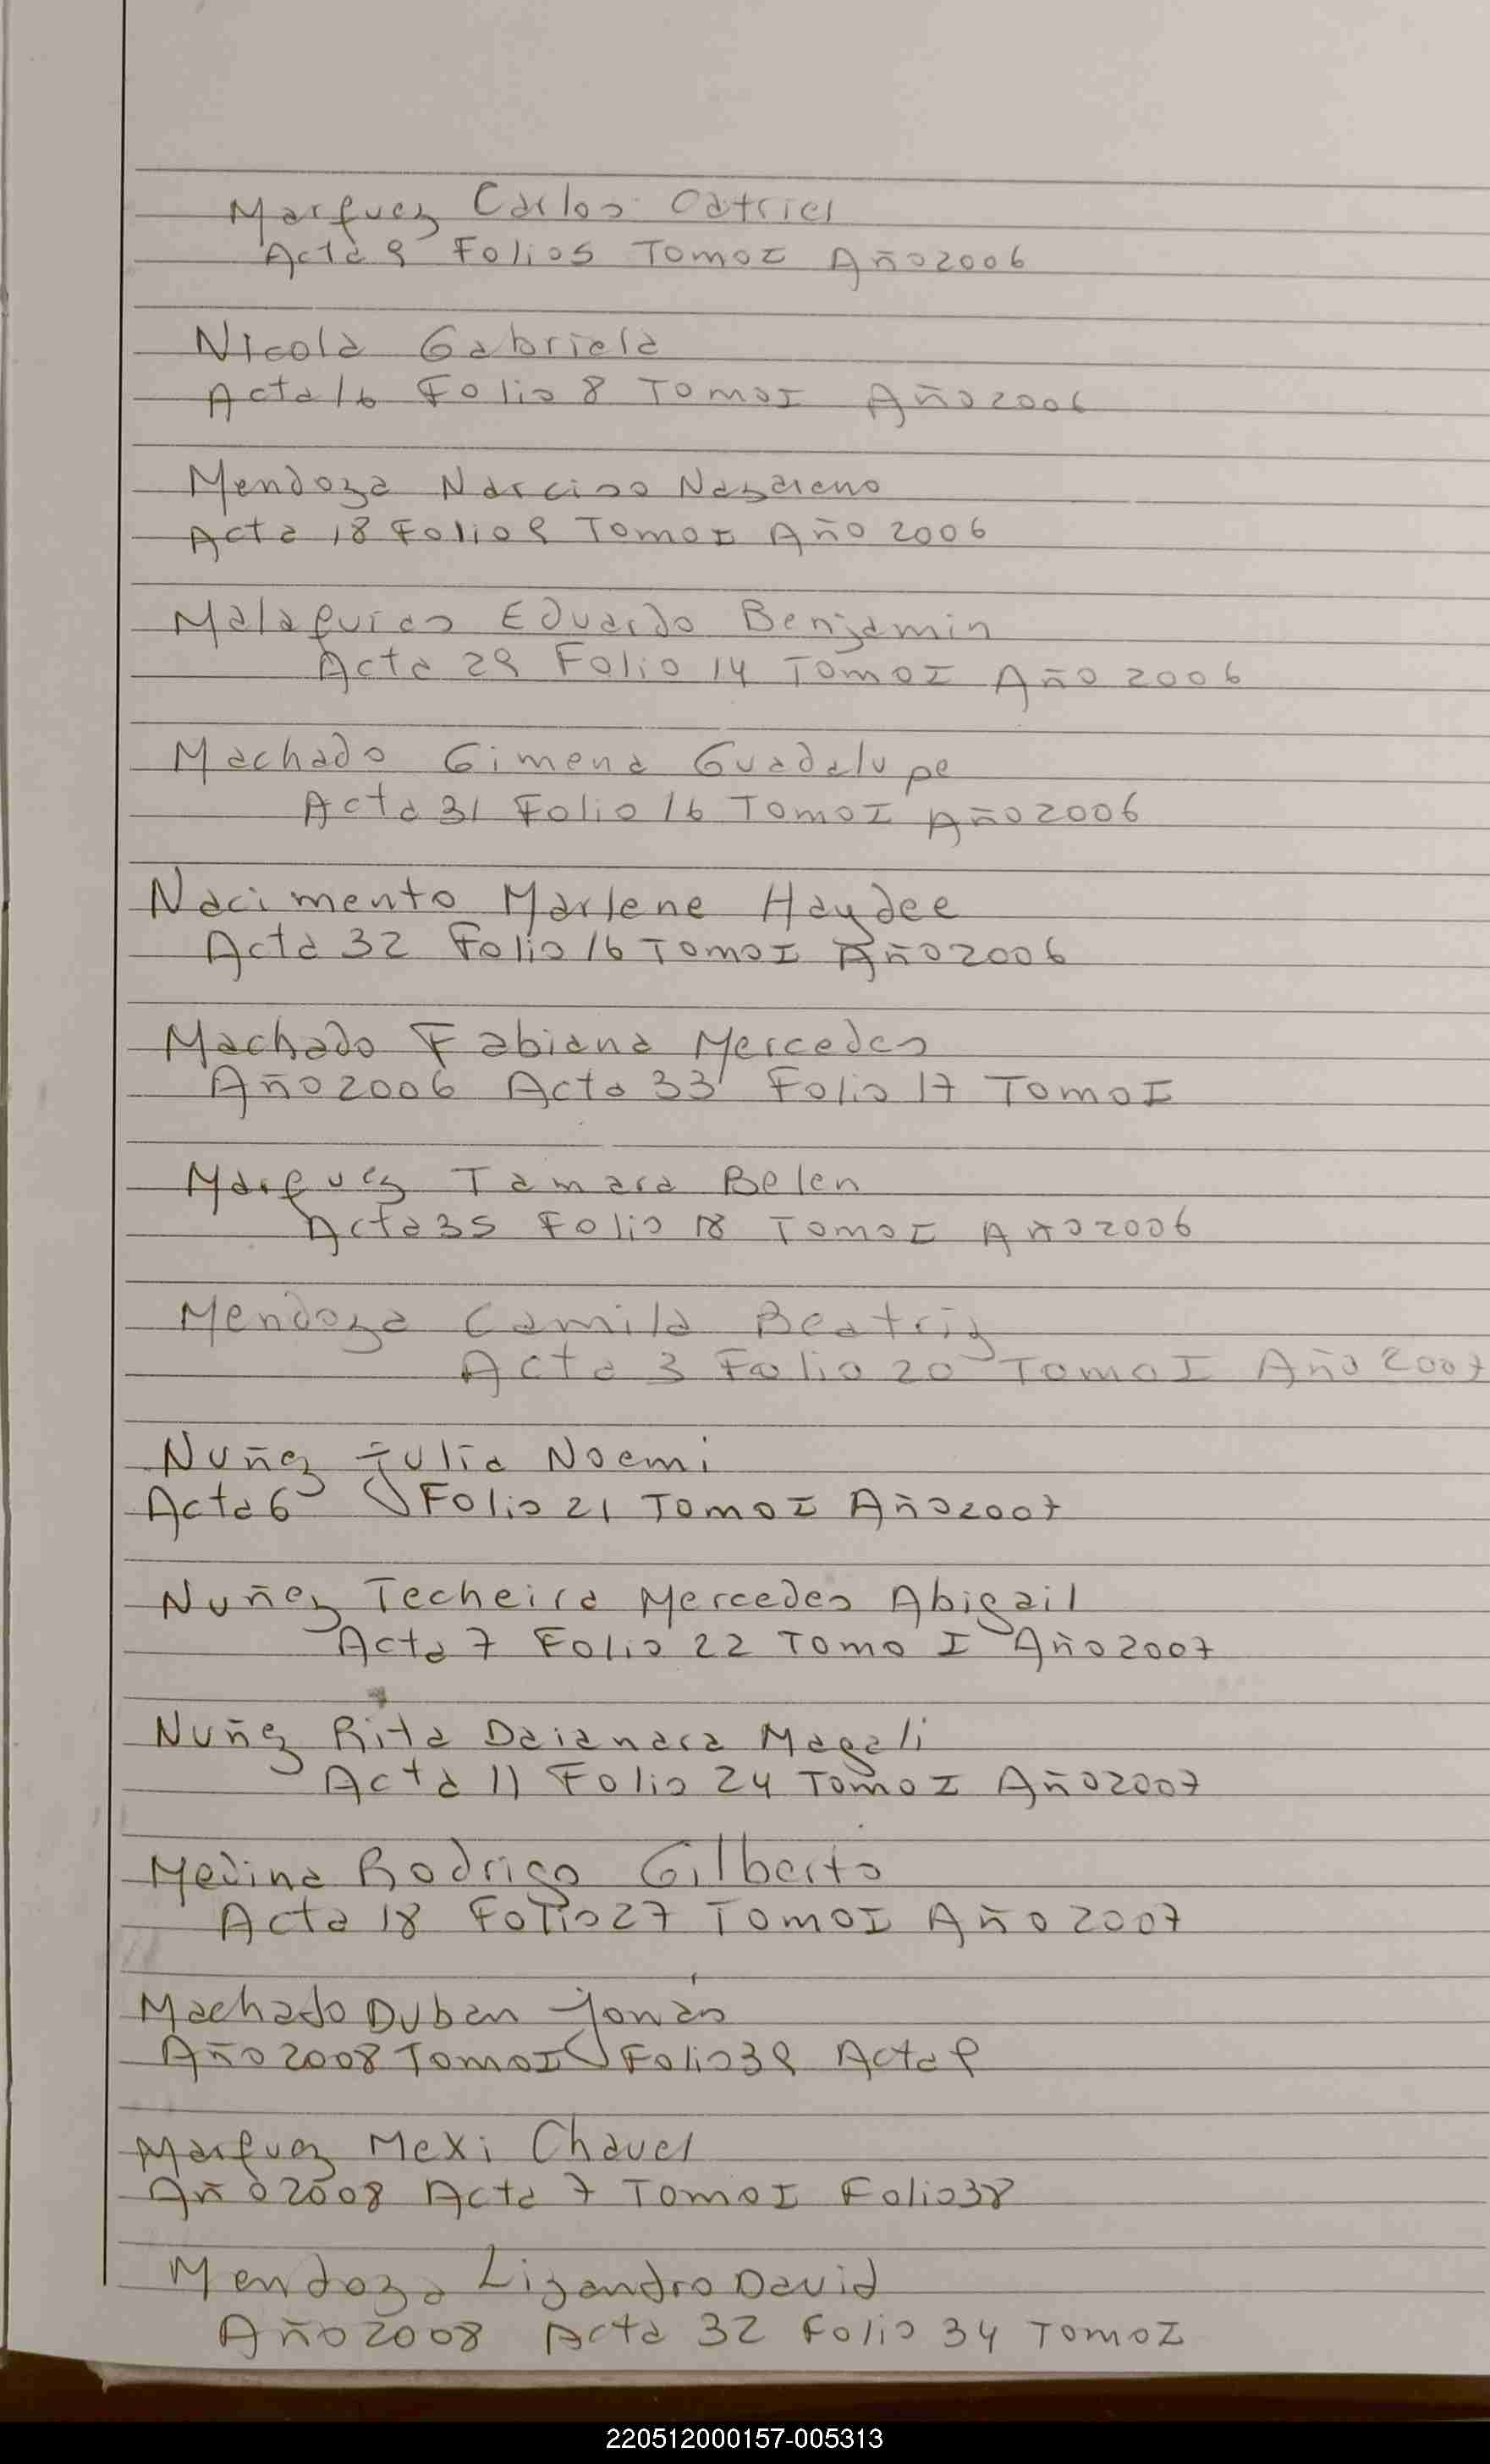 Marquez Carlos Catriel
Acta 9 Folio 5 Tomo I Año 2006
Nicola Gabriela
Acta 16 Folio 8 Tomo I Año 2006
Mendoza Narciso Nazareno
Acta 18 Folio 9 Tomo I Año 2006
Malaquias Eduardo Benjamin
Acta 29 Folio 14 Tomo I Año 2006
Machado Gimena Guadalupe
Acta 31 Folio 16 Tomo I Año 2006
Nacimento Marlene Haydee
Acta 32 Folio 16 Tomo I Año 2006
Machado Fabiana Mercedes
Año 2006 Acta 33 Folio 17 Tomo I
Marquez Tamara Belen
Acta 35 Folio 18 Tomo I Año 2006
Mendoza Camila Beatriz
Acta 3 Folio 20 Tomo I Año 2007
Nuñez Julia Noemi
Acta 6 Folio 21 Tomo I Año 2007
Nuñez Techeira Mercedes Abigail
Acta 7 Folio 22 Tomo I Año 2007
Nuñez Rita Daianara Magali
Acta 11 Folio 24 Tomo I Año 2007
Medina Rodrigo Gilberto
Acta 18 Folio 27 Tomo I Año 2007
Machado Duban Jonás
Año 2008 Tomo I Folio 39 Acta 9
Marquez Mexi Chavel
Año 2008 Acta 7 Tomo I Folio 38
Mendoza Lizandro David
Año 2008 Acta 32 Folio 34 Tomo I
220512000157-005313